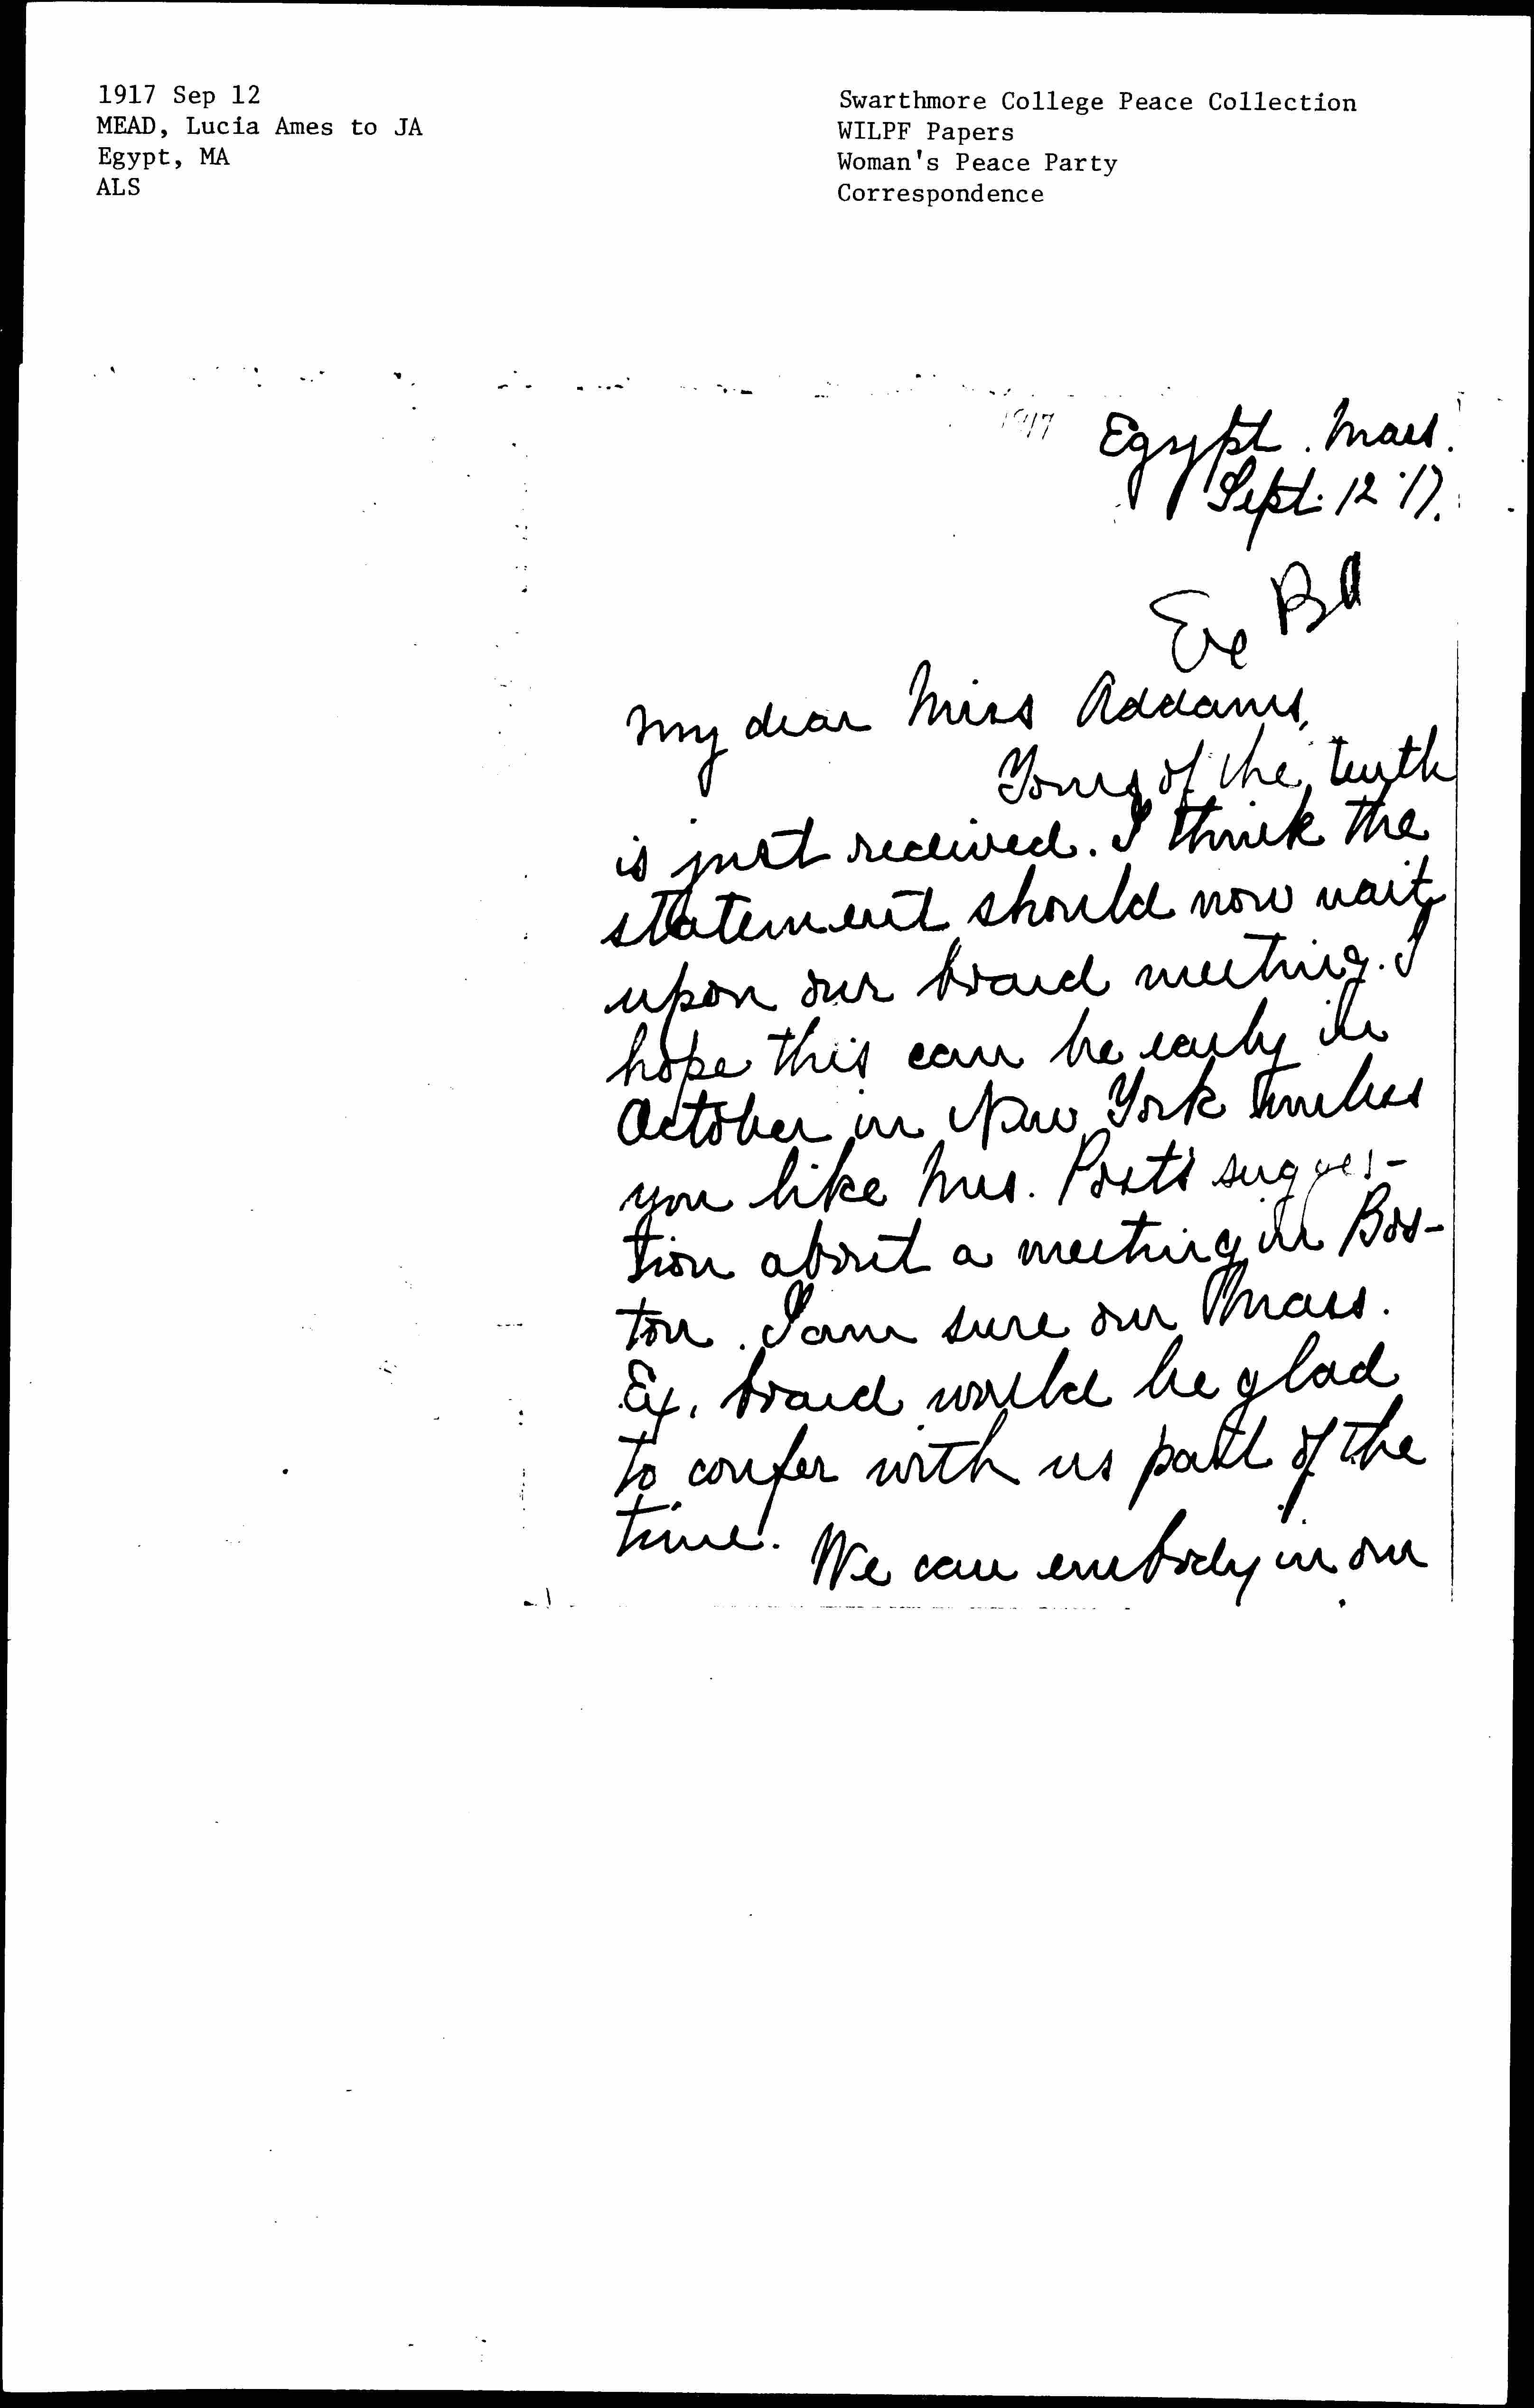 1917 Sep 12
MEAD, Lucia Ames to JA
Egypt, MA
ALS
Swarthmore College Peace Collection
WILPF Papers
Woman's Peace Party
Correspondence
1917
Egypt. Mass.
Sept. 12 '17.
Ex Bd
My dear Miss Addams,
Yours of the tenth
is just received. I think the
statement should now wait
upon our board meeting. I
hope this can be early in
October in New York unless
you like Mrs. Post's sugges-
tion about a meeting in Bos-
ton. I am sure our Mass.
Ex. board would be glad
to confer with us part of the
time. We can embody in our